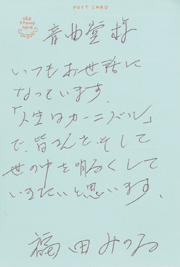 POST CARD
音曲堂様
いつもお世話に
なっています。
「人生はカーニバル」
で、皆さんを、そして
世の中を明るくして
いきたいと思います。
福田みのる